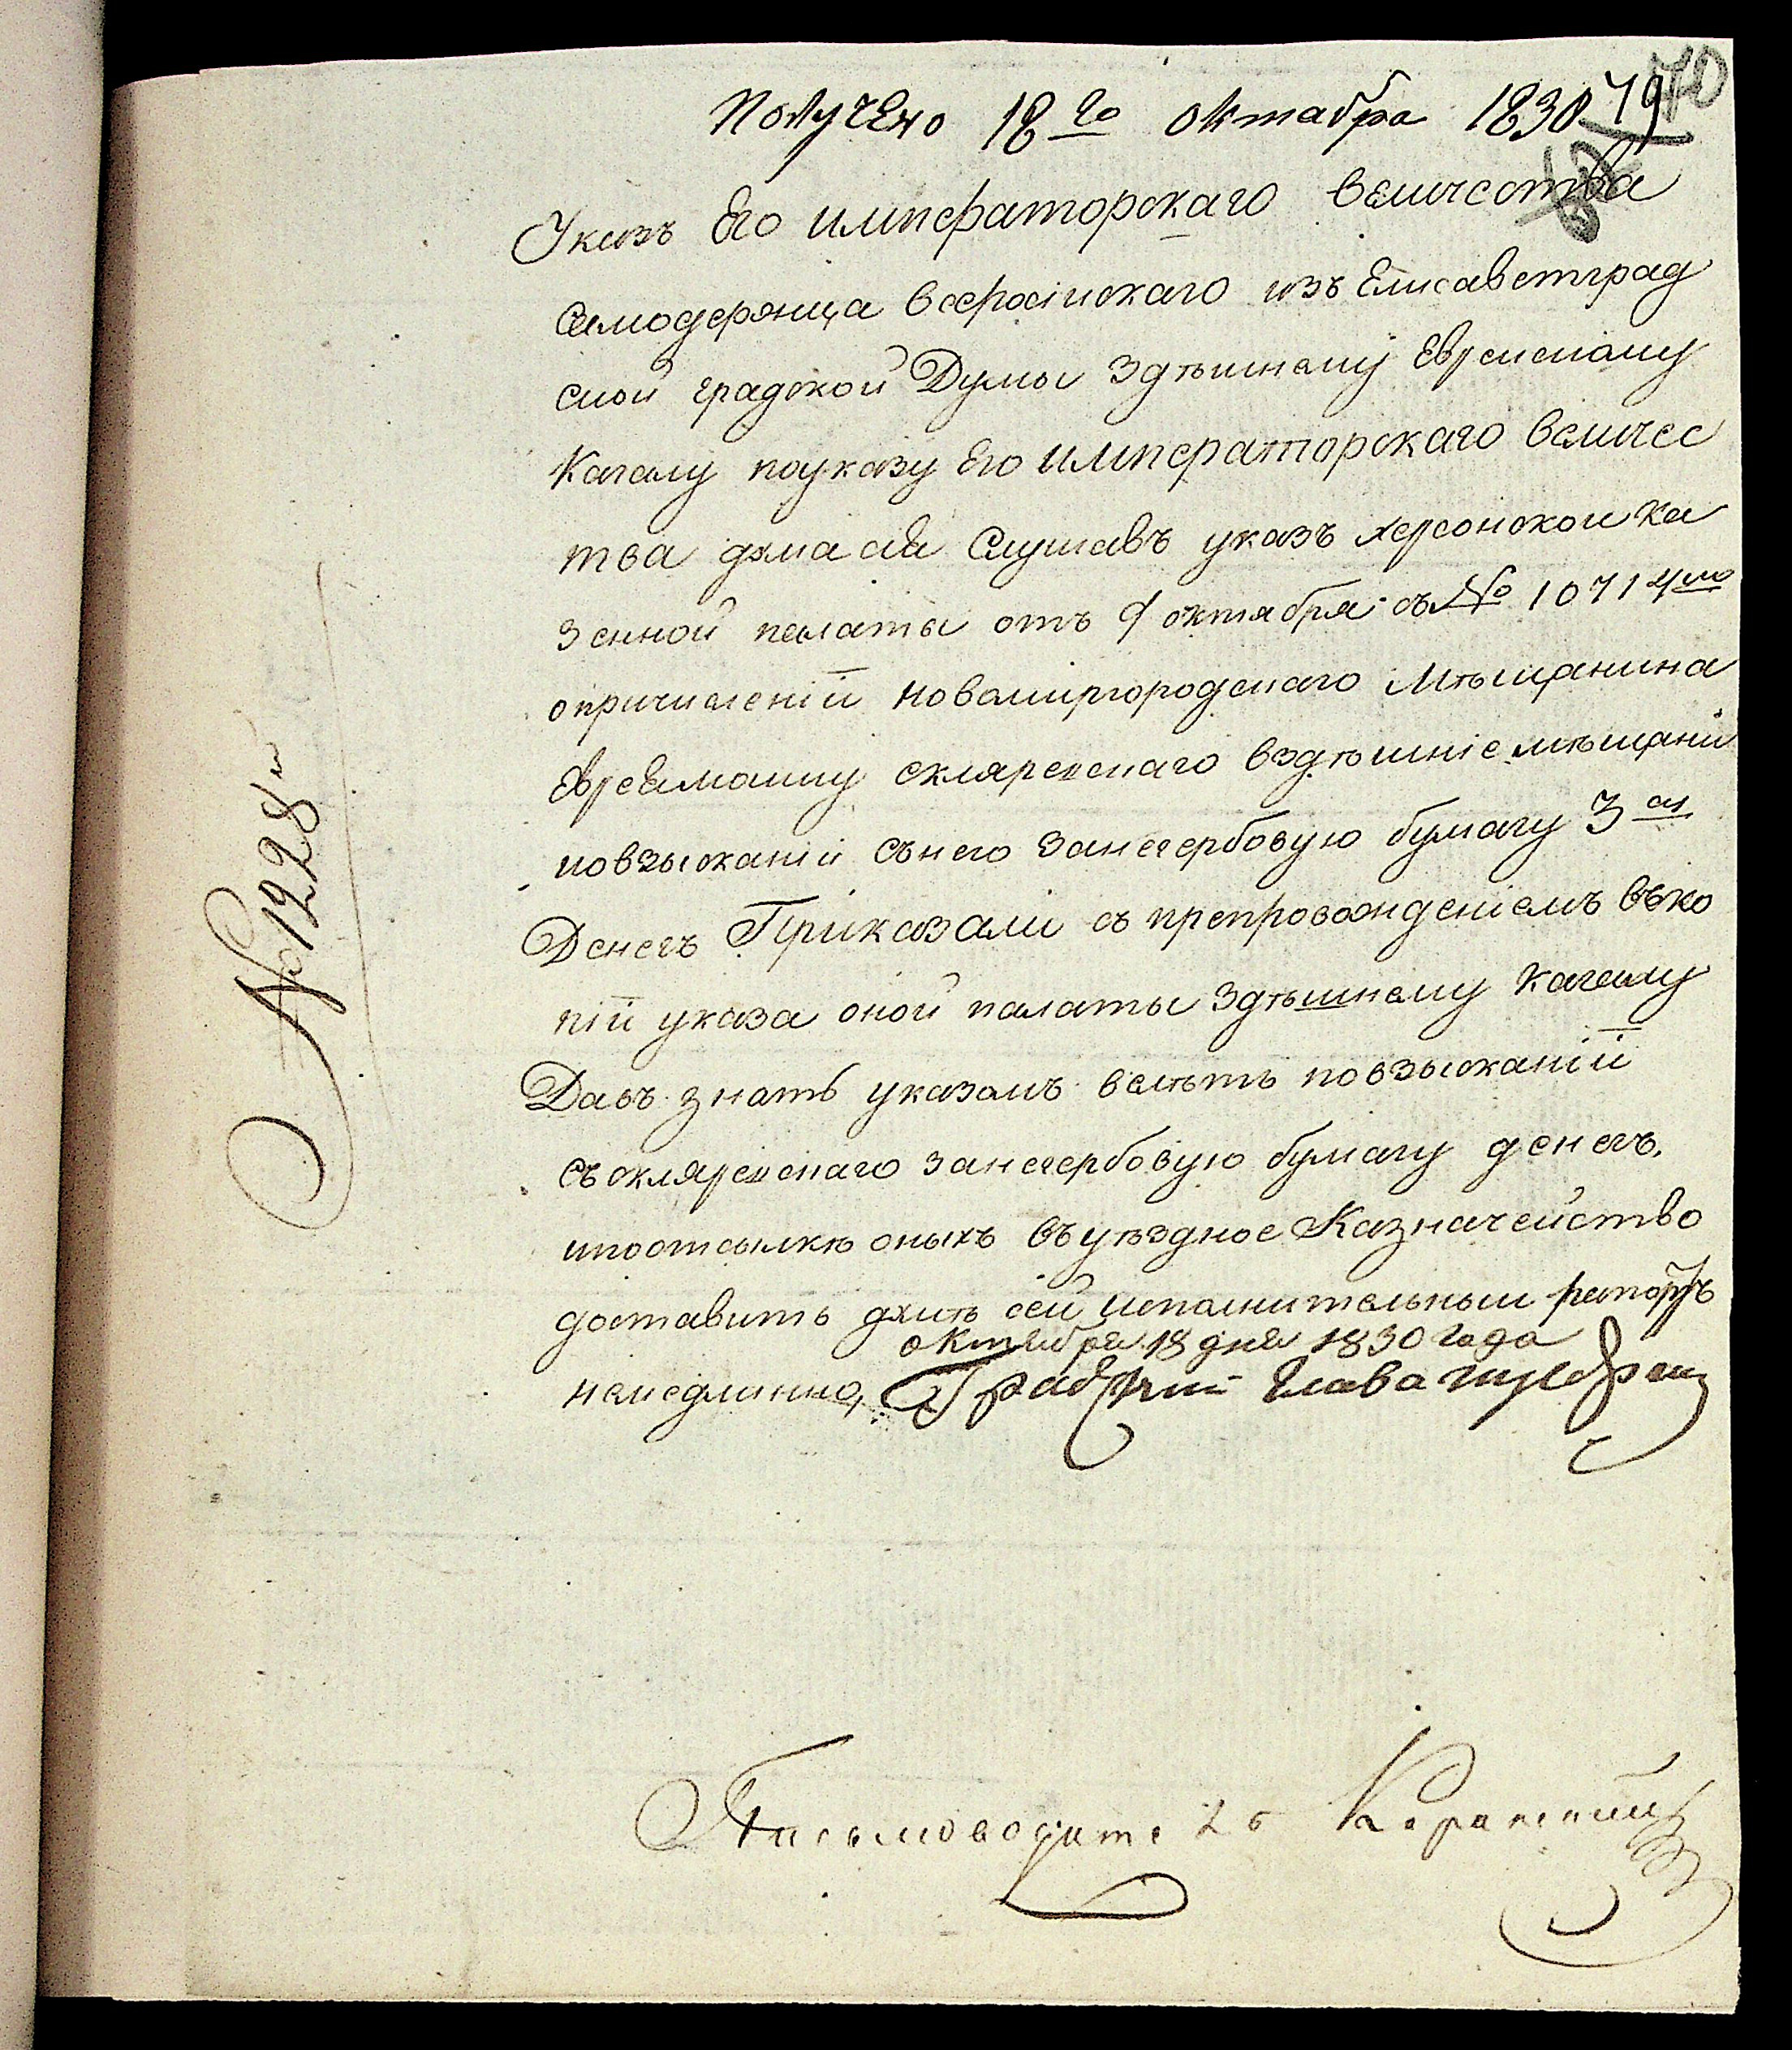 Получено 18го октабра 1830
79
70
Указъ Его императорскаго величества
Самодержица всеросіискаго изъ Елисаветград
ской градской Думы Здѣшнему Еврейскому
Кагалу поуказу Его императорскаго величес
тва дума сія Слушавъ указъ херсонской ка
зенной палаты отъ 9 октября съ № 10714мъ
опричисленіи новомиргородскаго Мѣщанина
Еврея скляревскаго вздѣшніе мѣщани
повзысканіи снего занегербовую бумагу 3хъ
Денегъ Приказали съ препровожденіемъ въко
піи указа оной палаты Здѣшнему Кагалу
Дать знать указомъ велѣть повзысканіи
съскляревскаго занегербовую бумагу денегъ.
ипоотсылкѣ оныхъ въуѣздное Казначейство
доставить думѣ сей исполнительный рапортъ
октября 18 дня 1830 года
немедлинно, Градский Глава
Письмоводитель
№ 1228й